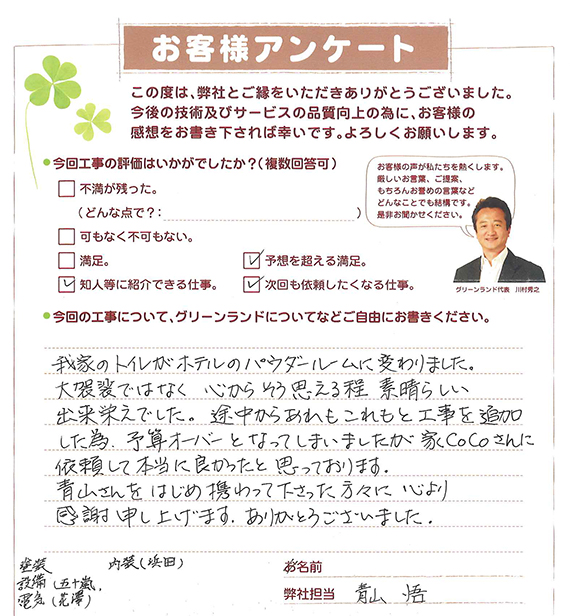 お客様アンケート
この度は、弊社とご縁をいただきありがとうございました。
今後の技術及びサービスの品質向上の為に、お客様の
感想をお書き下されば幸いです。よろしくお願いします。
●今回工事の評価はいかがでしたか？（複数回答可）
不満が残った。
（どんな点で？：　　　　　）
可もなく不可もない。
満足。
予想を超える満足。
知人等に紹介できる仕事。
次回も依頼したくなる仕事。
お客様の声が私たちを熱くします。
厳しいお言葉、ご提案、
もちろんお誉めの言葉など
どんなことでも結構です。
是非お聞かせください。
グリーンランド代表　川村秀之
●今回の工事について、グリーンランドについてなどご自由にお書きください。
我家のトイレがホテルのパウダールームに変わりました。
大袈裟ではなく 心からそう思える程 素晴らしい
出来栄えでした。途中からあれもこれもと工事を追加
した為、予算オーバーとなってしまいましたが 家CoCoさんに
依頼して本当に良かったと思っております。
青山さんをはじめ携わって下さった方々に 心より
感謝申し上げます。ありがとうございました。
塗装
内装（浜田）
設備（五十嵐）、
電気（花澤）
お名前
弊社担当　青山 悟